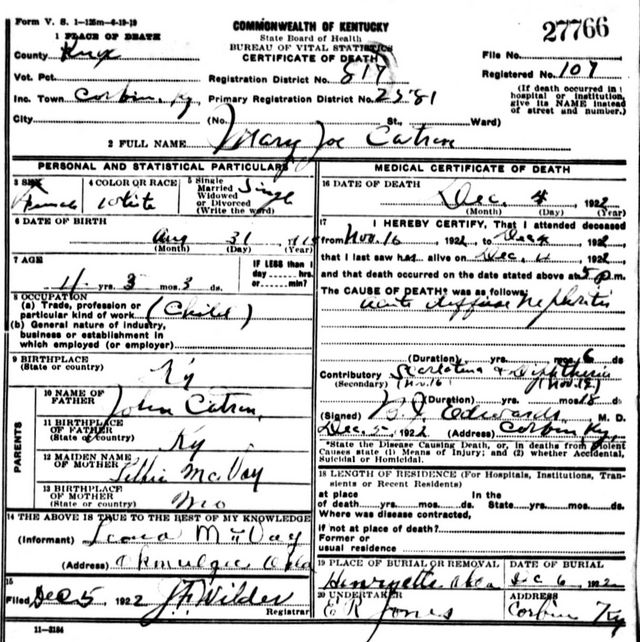 Form V. S. 1-125m-6-19-19
COMMONWEALTH OF KENTUCKY
State Board of Health
BUREAU OF VITAL STATISTICS
CERTIFICATE OF DEATH
27766
1 PLACE OF DEATH
County Knox
File No.
Vot. Pct.
Registration District No. 817
Registered No. 107
Inc. Town Corbin, Ky
Primary Registration District No. 2581
(If death occurred in a hospital or institution, give its NAME instead of street and number.)
City
(No. St., Ward)
2 FULL NAME Mary Joe Catron
PERSONAL AND STATISTICAL PARTICULARS
3 SEX Female
4 COLOR OR RACE White
5 Single Married Widowed or Divorced (Write the word) Single
6 DATE OF BIRTH
Aug 31
(Month) (Day) (Year)
7 AGE
4 yrs. 3 mos. 3 ds.
IF LESS than 1 day hrs. or min?
8 OCCUPATION
(a) Trade, profession or particular kind of work (Child)
(b) General nature of industry, business or establishment in which employed (or employer)
9 BIRTHPLACE
(State or country) Ky
PARENTS
10 NAME OF FATHER John Catron
11 BIRTHPLACE OF FATHER (State or country) Ky
12 MAIDEN NAME OF MOTHER McVay
13 BIRTHPLACE OF MOTHER (State or country) Mo
14 THE ABOVE IS TRUE TO THE BEST OF MY KNOWLEDGE
(Informant) McVay
(Address) Okmulgee Okla
15
Filed Dec 5 1922 J F Wilder
Registrar
11-3184
MEDICAL CERTIFICATE OF DEATH
16 DATE OF DEATH
Dec. 4 1922
(Month) (Day) (Year)
17 I HEREBY CERTIFY, That I attended deceased
from Nov. 16 1922, to Dec 4 1922
that I last saw h alive on Dec. 4 1922
and that death occurred on the date stated above at 5 p.m.
The CAUSE OF DEATH* was as follows:
acute diffuse nephritis
(Duration) yrs. mos. 6 ds.
Contributory Scarlatina & Diphtheria
(Secondary) (Nov. 16) (Nov. 19)
(Duration) yrs. mos. 18 ds.
(Signed) B J Edwards M. D.
Dec. 5 1922 (Address) Corbin Ky.
*State the Disease Causing Death, or, in deaths from Violent
Causes state (1) Means of Injury; and (2) whether Accidental,
Suicidal or Homicidal.
18 LENGTH OF RESIDENCE (For Hospitals, Institutions, Transients or Recent Residents)
at place of death yrs. mos. ds. In the State yrs. mos. ds.
Where was disease contracted,
if not at place of death?
Former or usual residence
19 PLACE OF BURIAL OR REMOVAL Henryetta Okla
DATE OF BURIAL Dec 6 1922
20 UNDERTAKER E R Jones
ADDRESS Corbin Ky